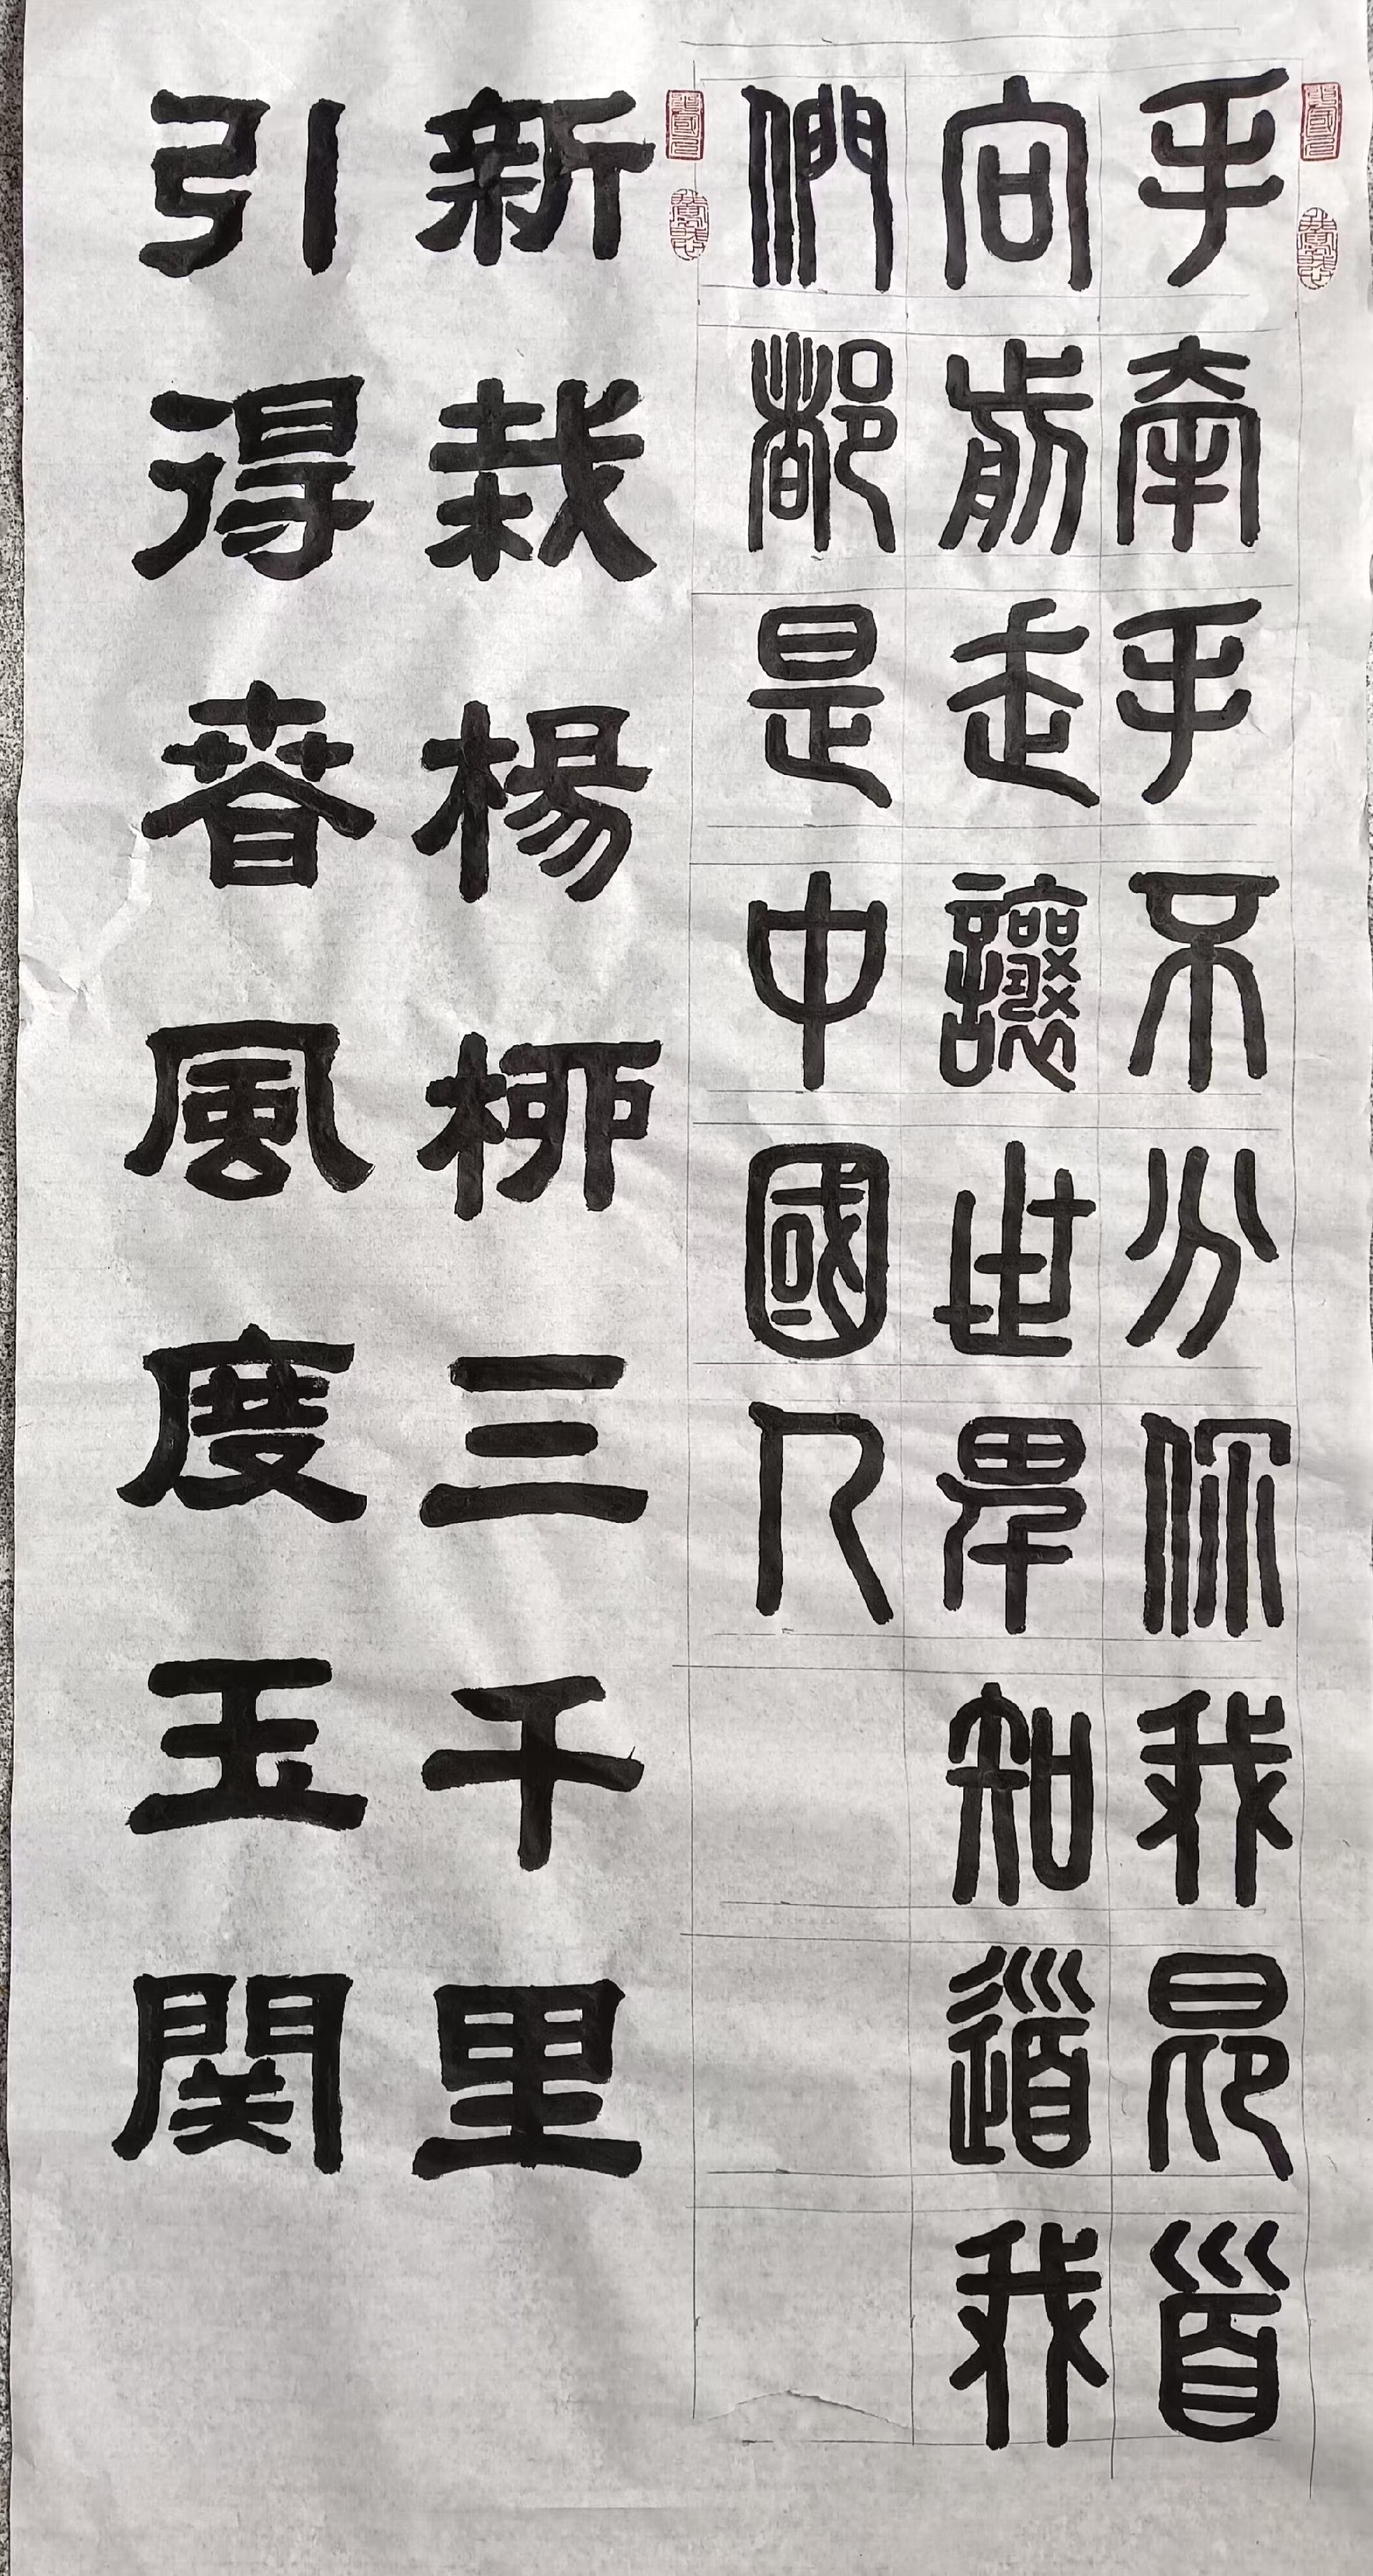 手牽手不分你我昂首
向前走讓世界知道我
們都是中國人
新栽楊柳三千里
引得春風度玉関